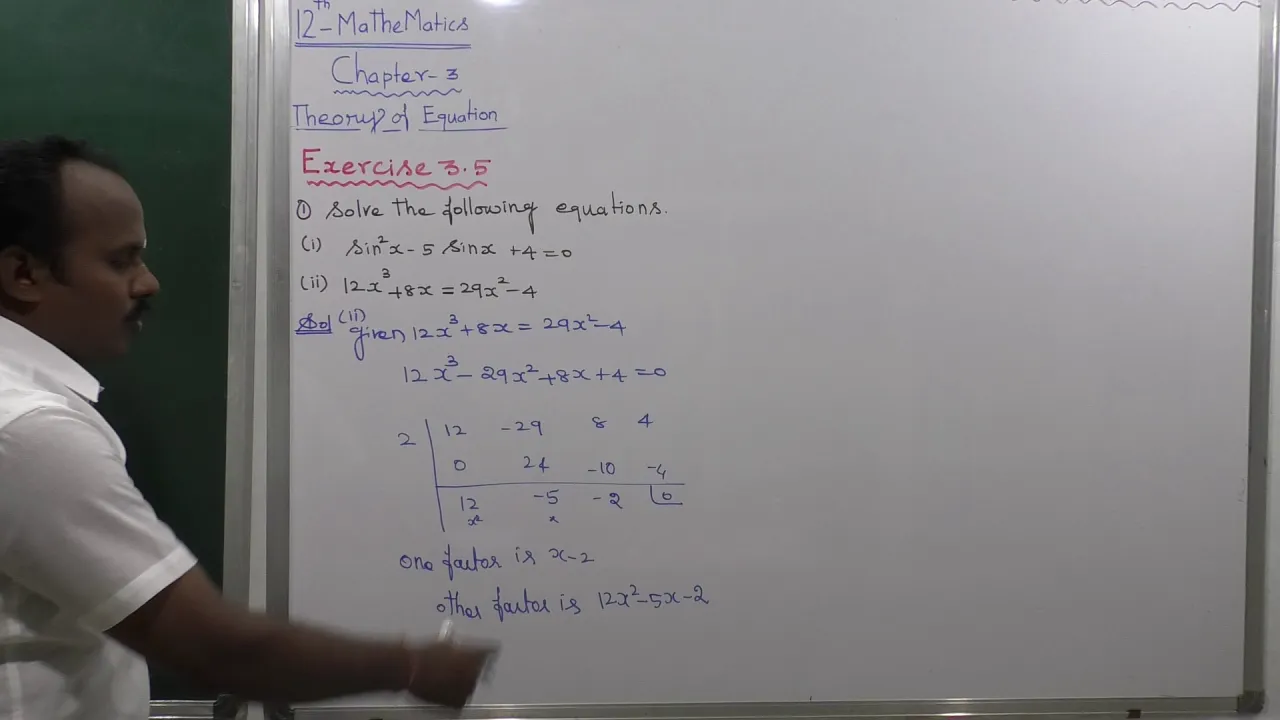 12th-MatheMatics
Chapter-3
Theory of Equation
Exercise 3.5
① Solve the following equations.
(i) sin²x - 5 sinx + 4 = 0
(ii) 12x³ + 8x = 29x² - 4
Sol (ii) given 12x³ + 8x = 29x² - 4
12x³ - 29x² + 8x + 4 = 0
2 | 12 -29 8 4
0 24 -10 -4
12 -5 -2 |0
x² x
one factor is x-2
other factor is 12x²-5x-2